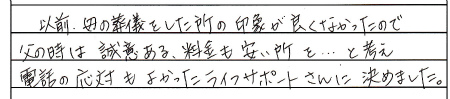 以前、母の葬儀をした所の印象が良くなかったので
父の時は誠意ある、料金も安い所を…と考え
電話の応対もよかったライフサポートさんに決めました。